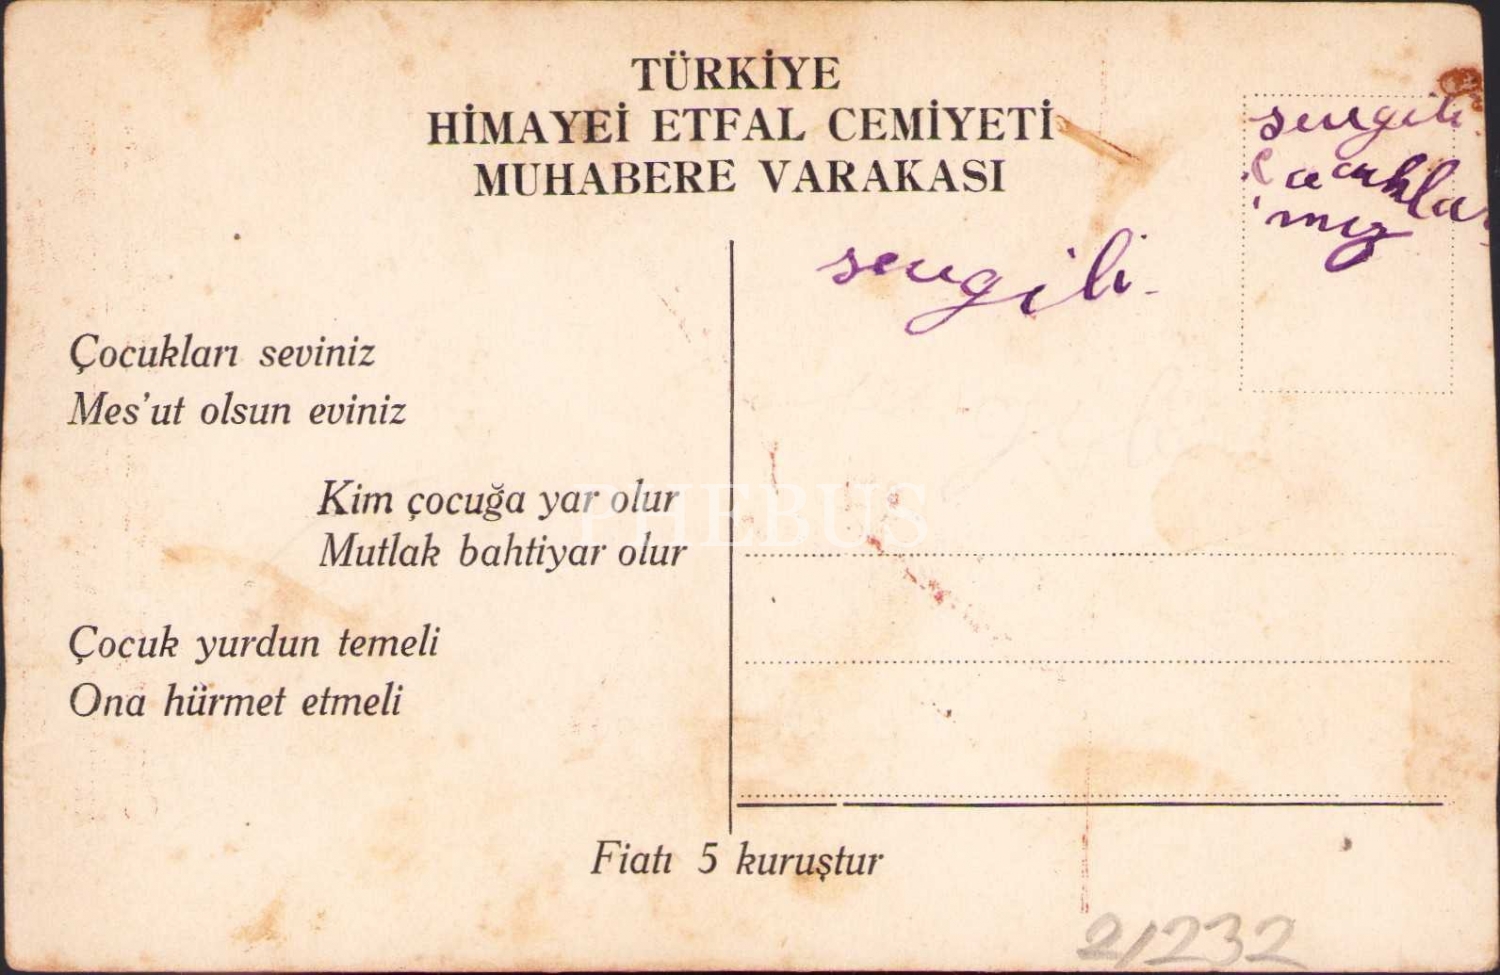 TÜRKİYE
HİMAYEİ ETFAL CEMİYETİ
MUHABERE VARAKASI
sevgili
sevgili
mız
Çocukları seviniz
Mes'ut olsun eviniz
Kim çocuğa yar olur
Mutlak bahtiyar olur
PHEBUS
Çocuk yurdun temeli
Ona hürmet etmeli
Fiatı 5 kuruştur
21232